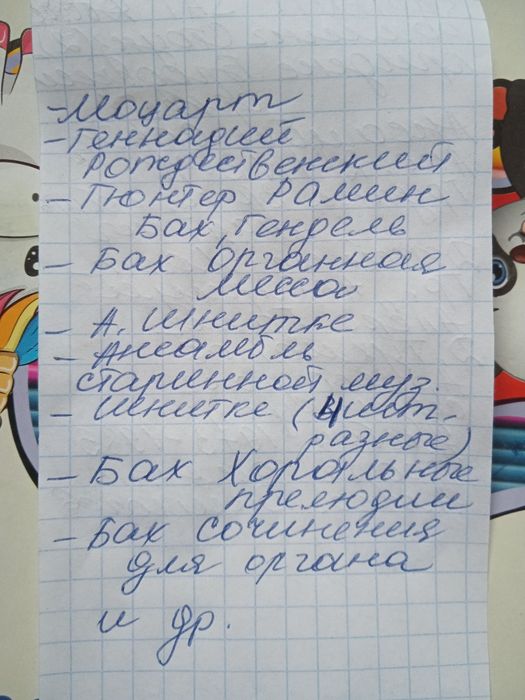 - Моцарт
- Геннадий
Рождественский
- Гюнтер Рамин
Бах, Гендель
- Бах Органная
Месса
- А. Шнитке
- Ансамбль
старинной муз.
- Шнитке (4 шт -
разные)
- Бах Хоральные
прелюдии
- Бах сочинения
для органа
и др.